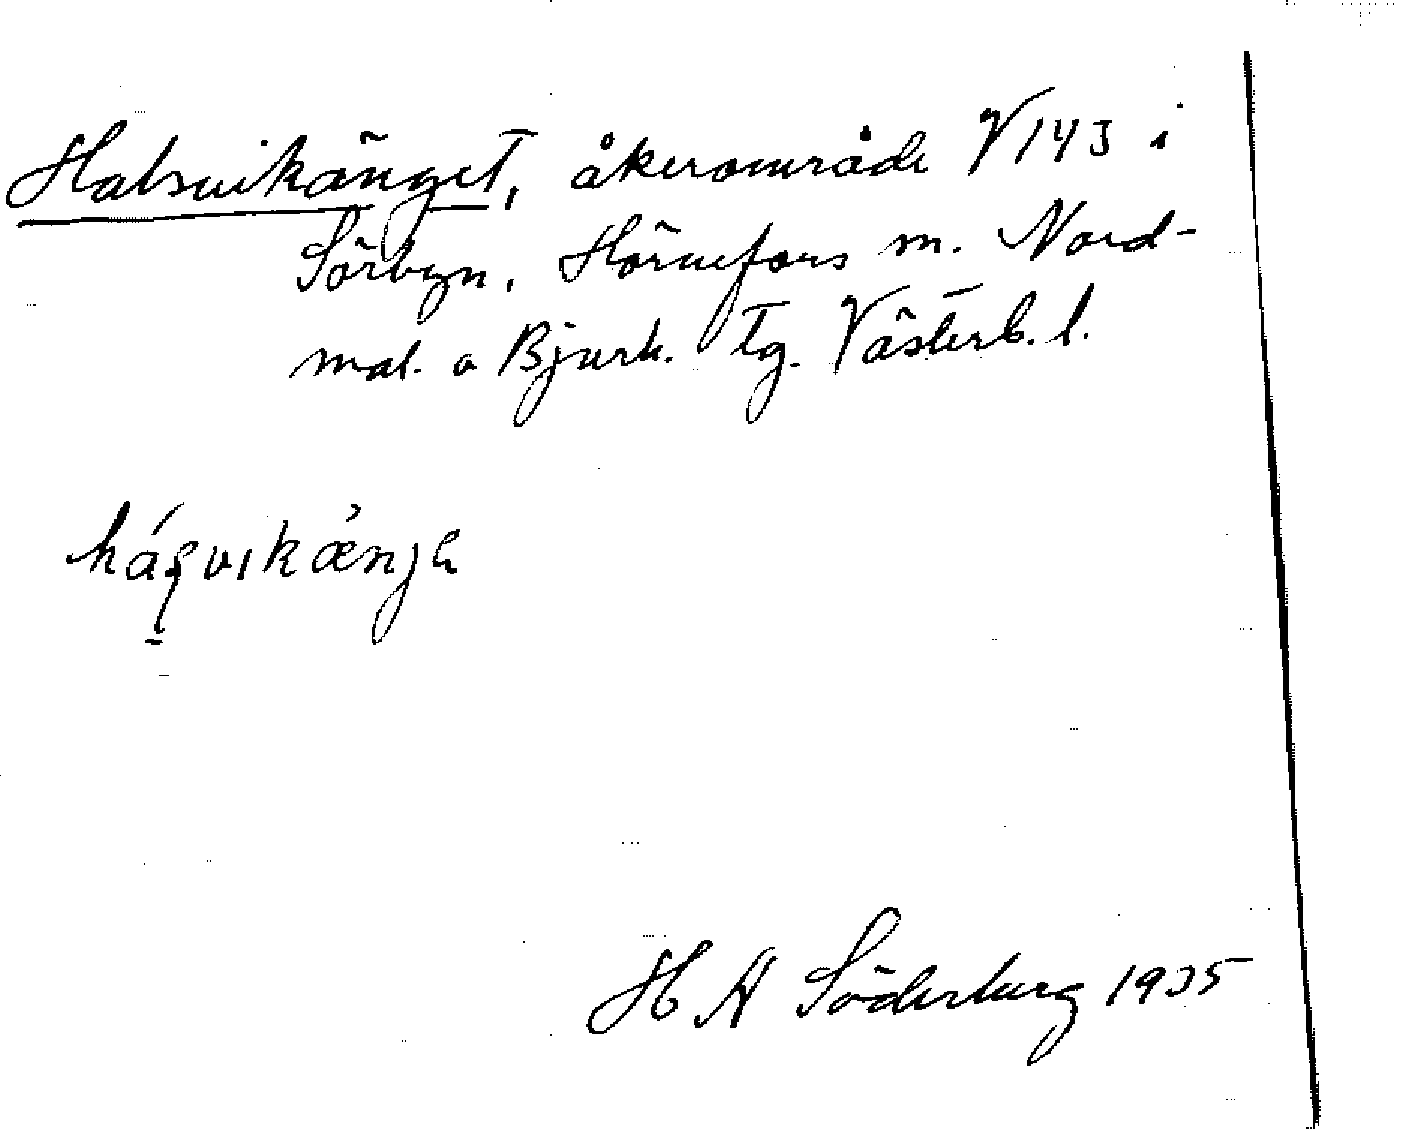 Halsvikänget, åkerområde V143 i
Sörbyn, Hörnefors m. Nord-
mal. o Bjurh. tg. Västerb. l.
hásvikæ̀nja
H A Söderberg 1935